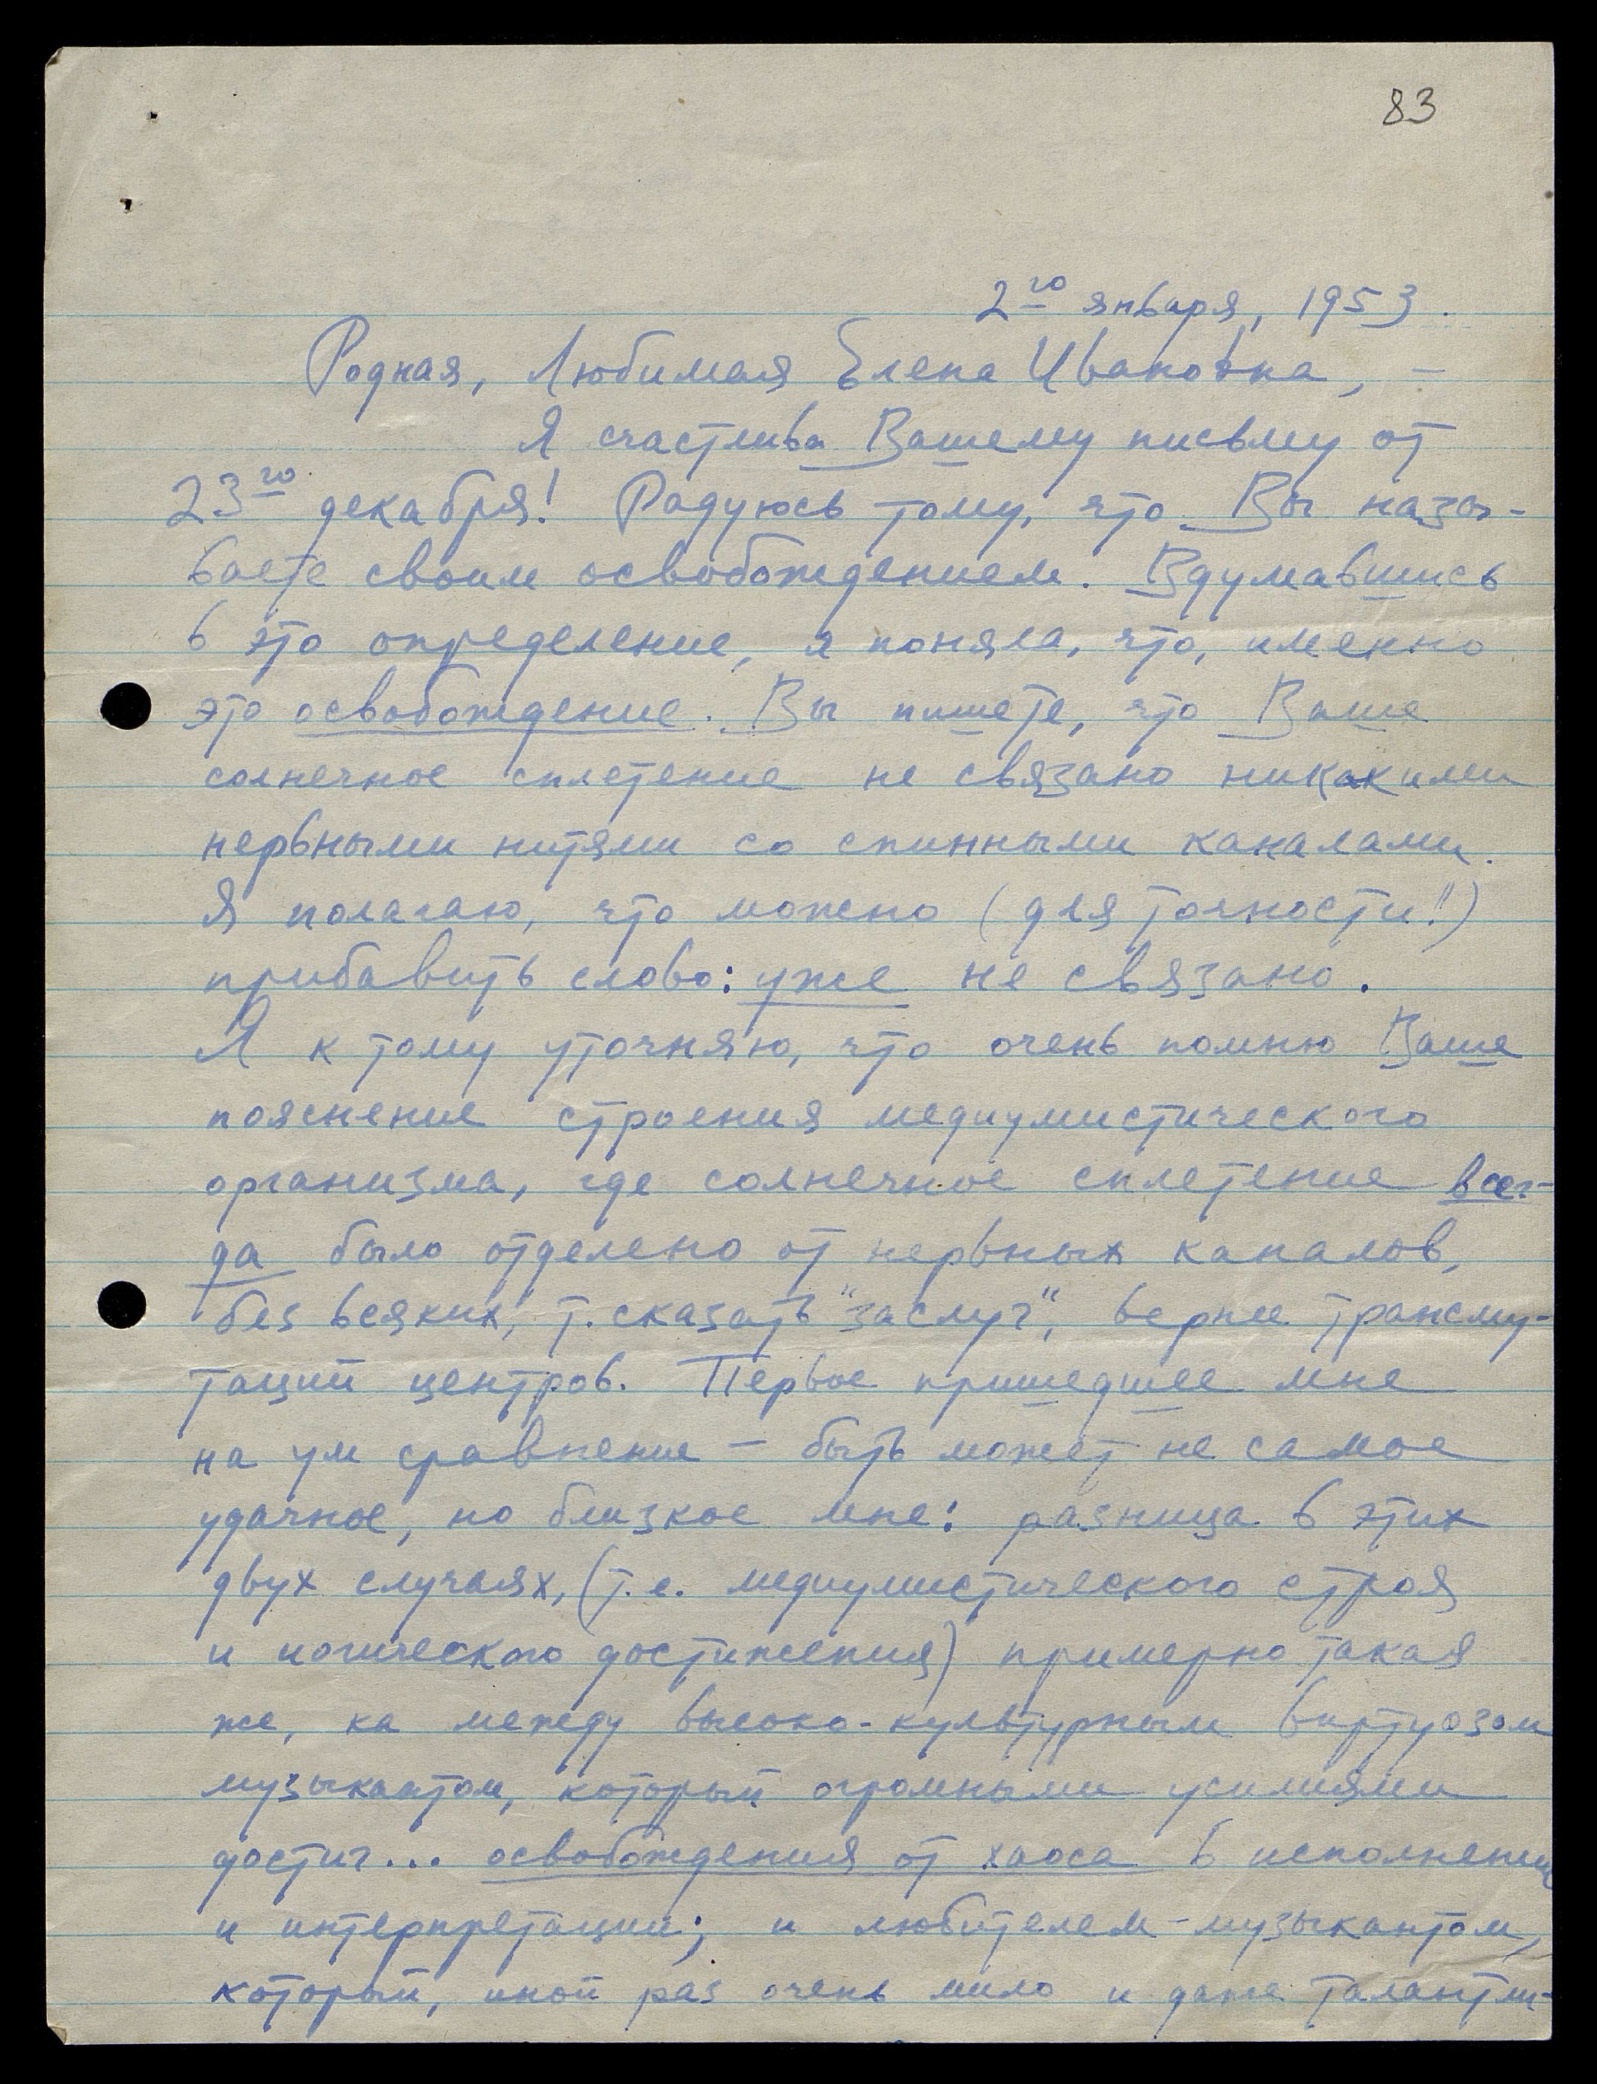 83
2го января, 1953.
Родная, Любимая Елена Ивановна, –
Я счастлива Вашему письму от
23го декабря! Радуюсь тому, что Вы назы-
ваете своим освобождением. Вдумавшись
в это определение, я поняла, что, именно
это освобождение. Вы пишете, что Ваше
солнечное сплетение не связано никакими
нервными нитями со спинными каналами.
Я полагаю, что можно (для точности!!)
прибавить слово: уже не связано.
Я к тому уточняю, что очень помню Ваше
пояснение строения медиумистического
организма, где солнечное сплетение всег-
да было отделено от нервных каналов,
без всяких, т. сказать "заслуг", вернее трансму-
таций центров. Первое пришедшее мне
на ум сравнение – быть может не самое
удачное, но близкое мне: разница в этих
двух случаях, (т.е. медиумистического строя
и йогического достижения) примерно такая
же, ка между высоко-культурным виртуозом
музыкантом, который огромными усилиями
достиг... освобождения от хаоса в исполнении
и интерпретации; и любителем-музыкантом,
который, иной раз очень мило и даже талантли-